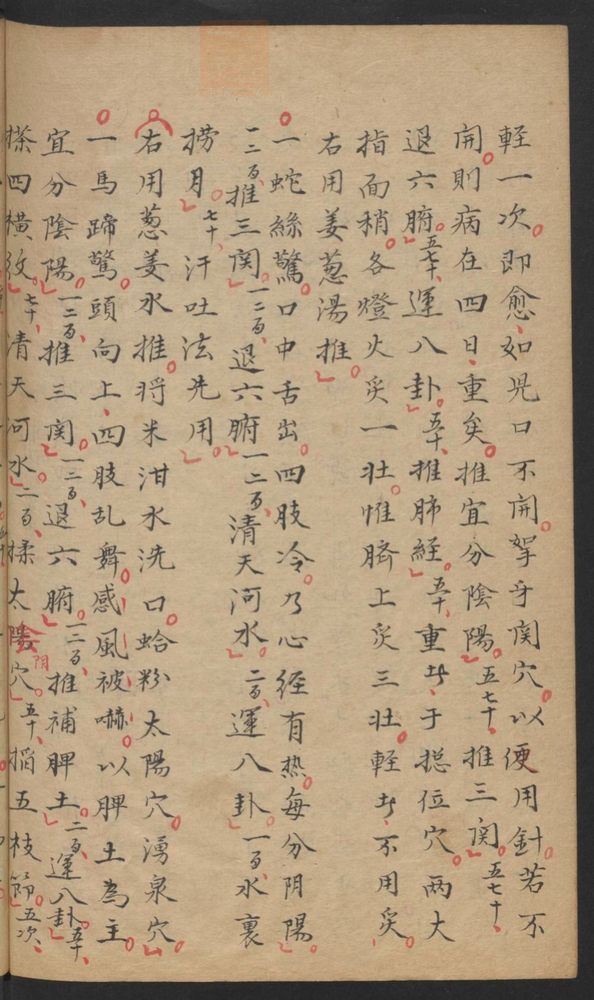 輕一次即愈如児口不開掔乎関穴以便用針若不
開則病在四日重矣推宜分陰陽五七十推三関五七十
退六腑五七十運八卦五十推肺経五十重者于捴位穴两大
指面稍各燈火炙一壮惟臍上炙三壮輕者不用炙
右用姜葱湯推
一蛇絲驚口中舌出四肢冷乃心経有热每分阴陽
一二百推三関一二百退六腑一二百清天河水二百運八卦一百水裏
捞月七十汗吐法先用
右用葱姜水推将米泔水洗口蛤粉太陽穴湧泉穴
一馬蹄驚頭向上四肢乱舞感風被嚇以脾土為主
宜分陰陽一二百推三関一二百退六腑一二百推補脾土二百運八卦五十
搽四横纹七十清天河水二百揉太陽阴穴五十掐五枝節五次